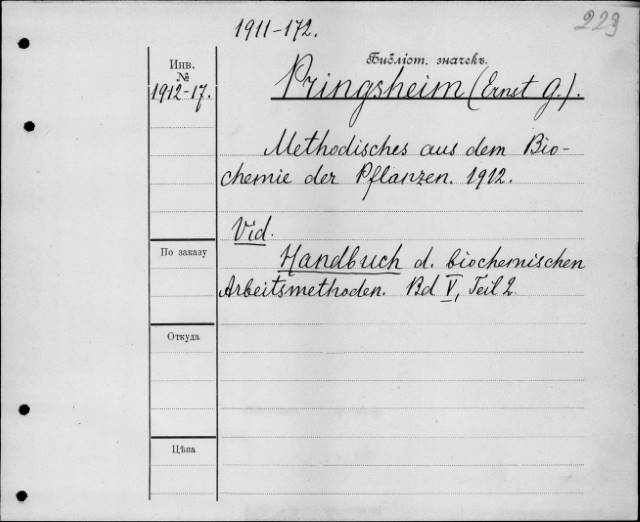 1911-172.
223
Инв.
№
1912-17.
Библіот. значекъ.
Pringsheim (Ernst G.).
Methodisches aus dem Bio-
chemie der Pflanzen. 1912.
Vid.
Handbuch d. biochemischen
Arbeitsmethoden. Bd V, Teil 2
По заказу
Откуда
Цѣна